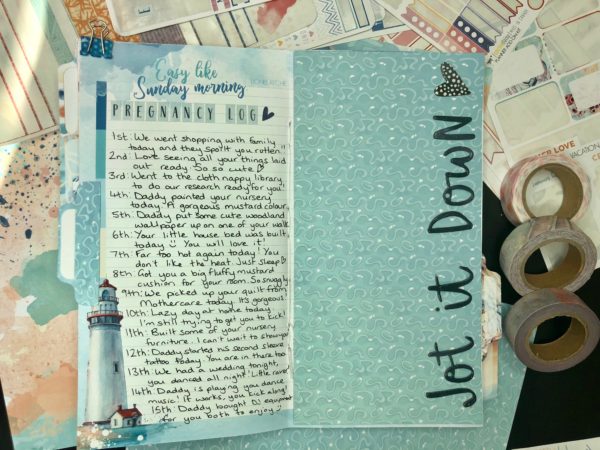 Easy like
Sunday morning
PREGNANCY LOG
1st: We went shopping with family
today and they spoilt you rotten!!
2nd: Love seeing all your things laid
out ready. So so cute
3rd: Went to the cloth nappy library,
to do our research ready for you.
4th: Daddy painted your nursery
today. A gorgeous mustard colour.
5th: Daddy put some cute woodland
wallpaper up on one of your walls
6th: Your little house bed was built
today You will love it!
7th: Far too hot again today! You
don't like the heat. Just sleep
8th: Got you a big fluffy mustard
cushion for your room. So snuggly
9th: We picked up your quilt from
Mothercare today. It's gorgeous!
10th: Lazy day at home today
I'm still trying to get you to kick!
11th: Built some of your nursery
furniture.. I can't wait to show you
12th: Daddy started his second sleeve
tattoo today. You are in there too
13th: We had a wedding tonight,
you danced all night! Little raver!
14th: Daddy is playing you dance
music! It works, you kick along!
15th: Daddy bought DJ equipment
for you both to enjoy
Jot it Down
LOVE
VACATION